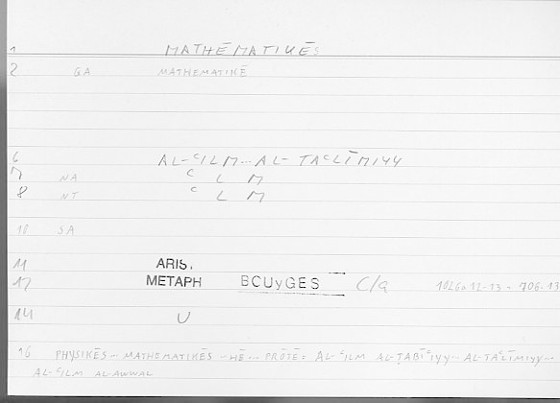 1 MATHĒMATIKĒS
2 GA MATHEMATIKĒ
6 AL-ᶜILM... AL-TAᶜLĪMIYY
7 NA ᶜ L M
8 NT ᶜ L M
10 SA
11 ARIS.
12 METAPH BCUyGES C/a 1026a 12-13 - 706.13
14 U
16 PHYSIKĒS... MATHĒMATIKĒS -HĒ... PRŌTĒ: AL-ᶜILM AL-ṬABĪᶜIYY... AL-TAᶜLĪMIYY...
AL-ᶜILM AL-AWWAL